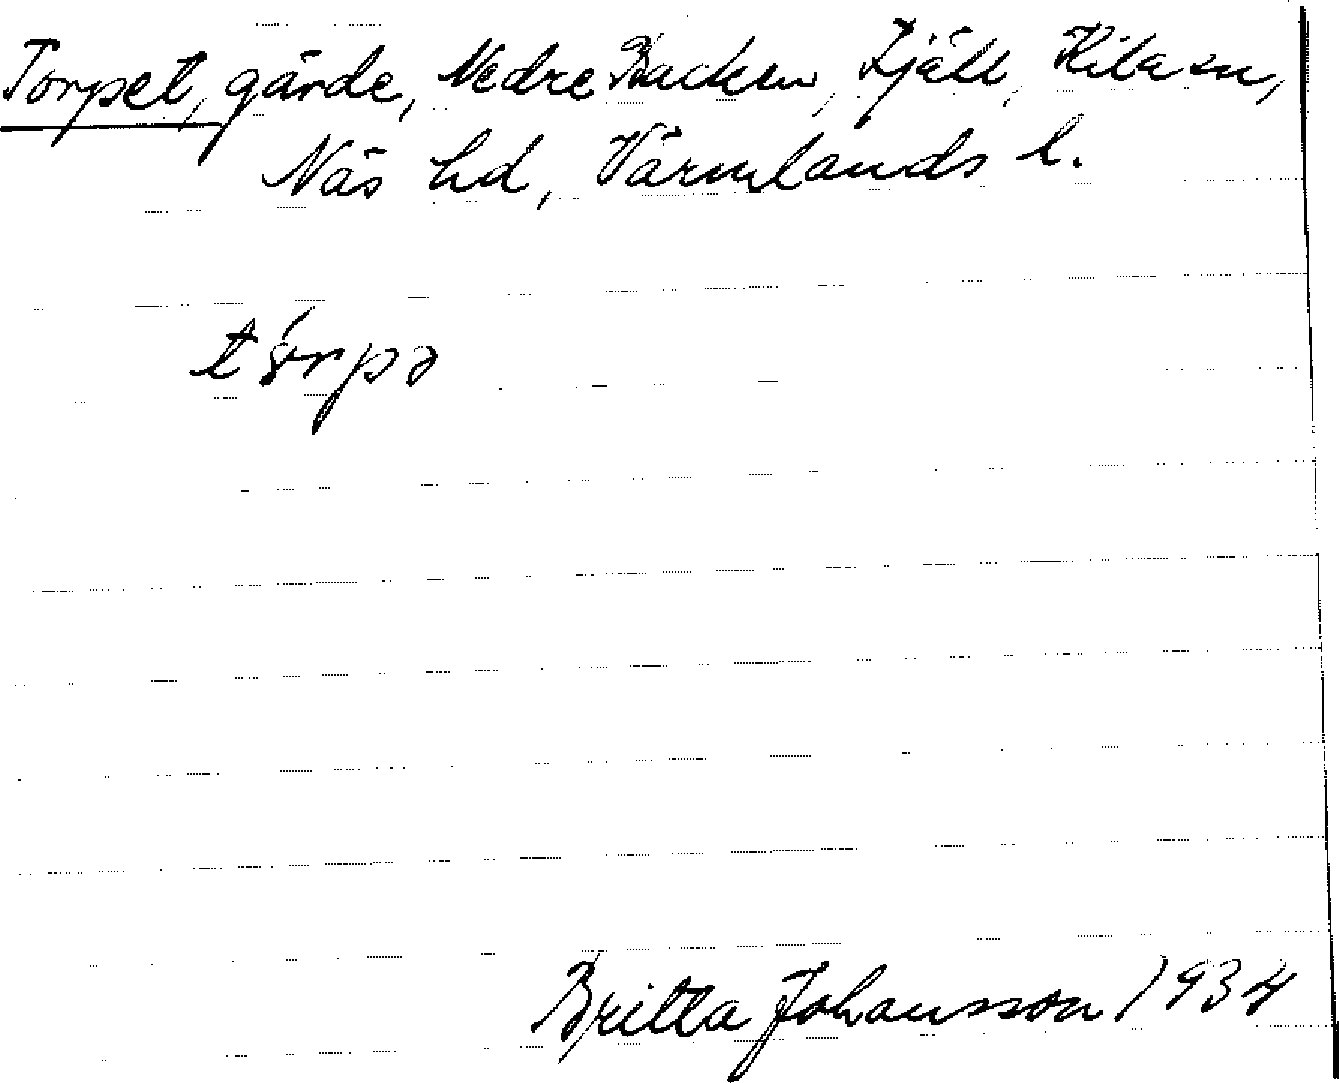 Torpet, gärde, Nedre Backen, Fjäll, Kila sn,
Näs hd, Värmlands l.
törpə
Britta Johansson 1934